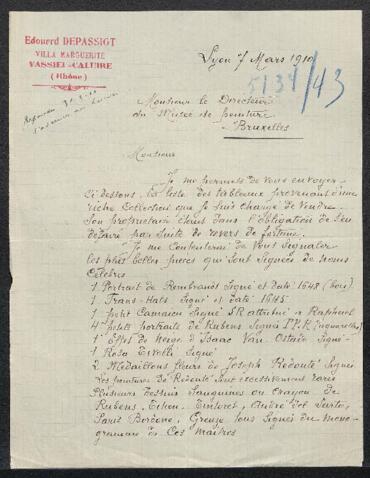 Edouard DEPASSIOT
VILLA MARGUERITE
VASSIEU-CALUIRE
(Rhône)
Lyon 7 Mars 1910
5134/43
Monsieur le Directeur
du Musée de peinture
Bruxelles
Monsieur
Je me permets de vous envoyer
ci dessous la liste des tableaux provenant d'une
riche collection que je suis chargé de vendre
son propriétaire étant dans l'obligation de s'en
défaire par suite de revers de fortune.
Je me contenterai de vous signaler
les plus belles pièces qui sont signées de noms
célèbres
1 Portrait de Rembrandt signé et daté 1648 (bois)
1 Frans-Hals signé et daté 1645
1 petit Camaieu signé S R attribué à Raphael
4 petits portraits de Rubens signés P.P.R (aquarelles)
1 Effet de Neige d'Isaac Van Ostade signé
1 Rosa Tivolli signé
2 Médaillons fleurs de Joseph Redouté signés
Les peintures de Redouté sont excessivement rares
Plusieurs dessins sanguines ou crayon de
Rubens, Tintoret, André del Sarto,
Paris Bordone, Greuze tous signés du mono-
gramme de ces maîtres